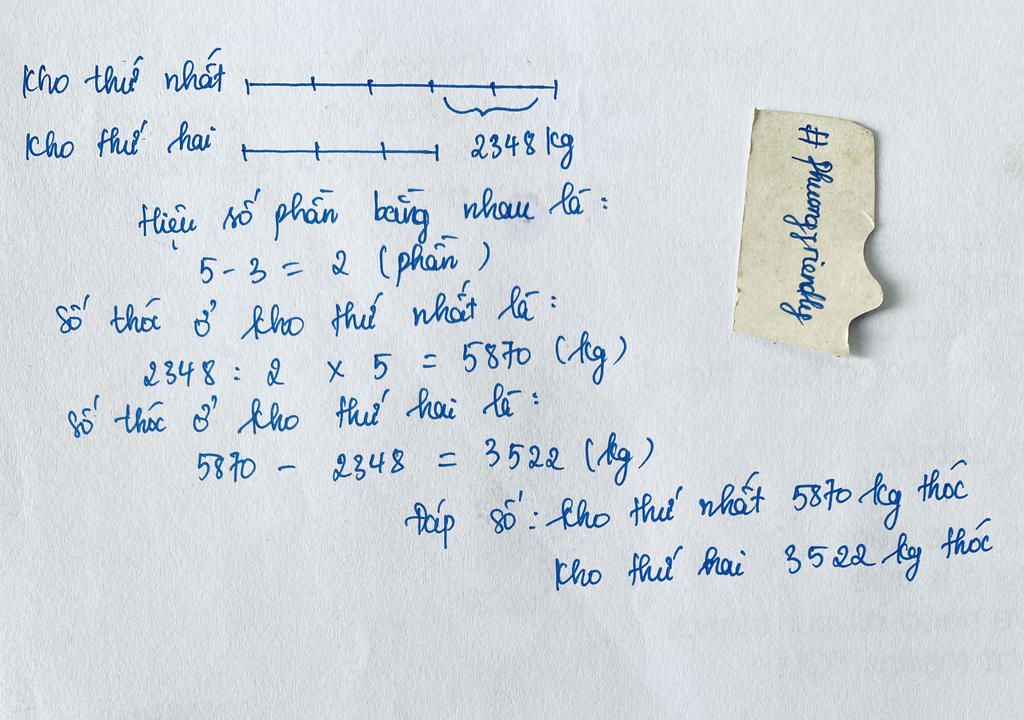 Kho thứ nhất
Kho thứ hai 2348 kg
Hiệu số phần bằng nhau là :
5 - 3 = 2 (phần)
Số thóc ở kho thứ nhất là :
2348 : 2 x 5 = 5870 (kg)
Số thóc ở kho thứ hai là :
5870 - 2348 = 3522 (kg)
Đáp số : Kho thứ nhất 5870 kg thóc
Kho thứ hai 3522 kg thóc
# Phuongfriendly